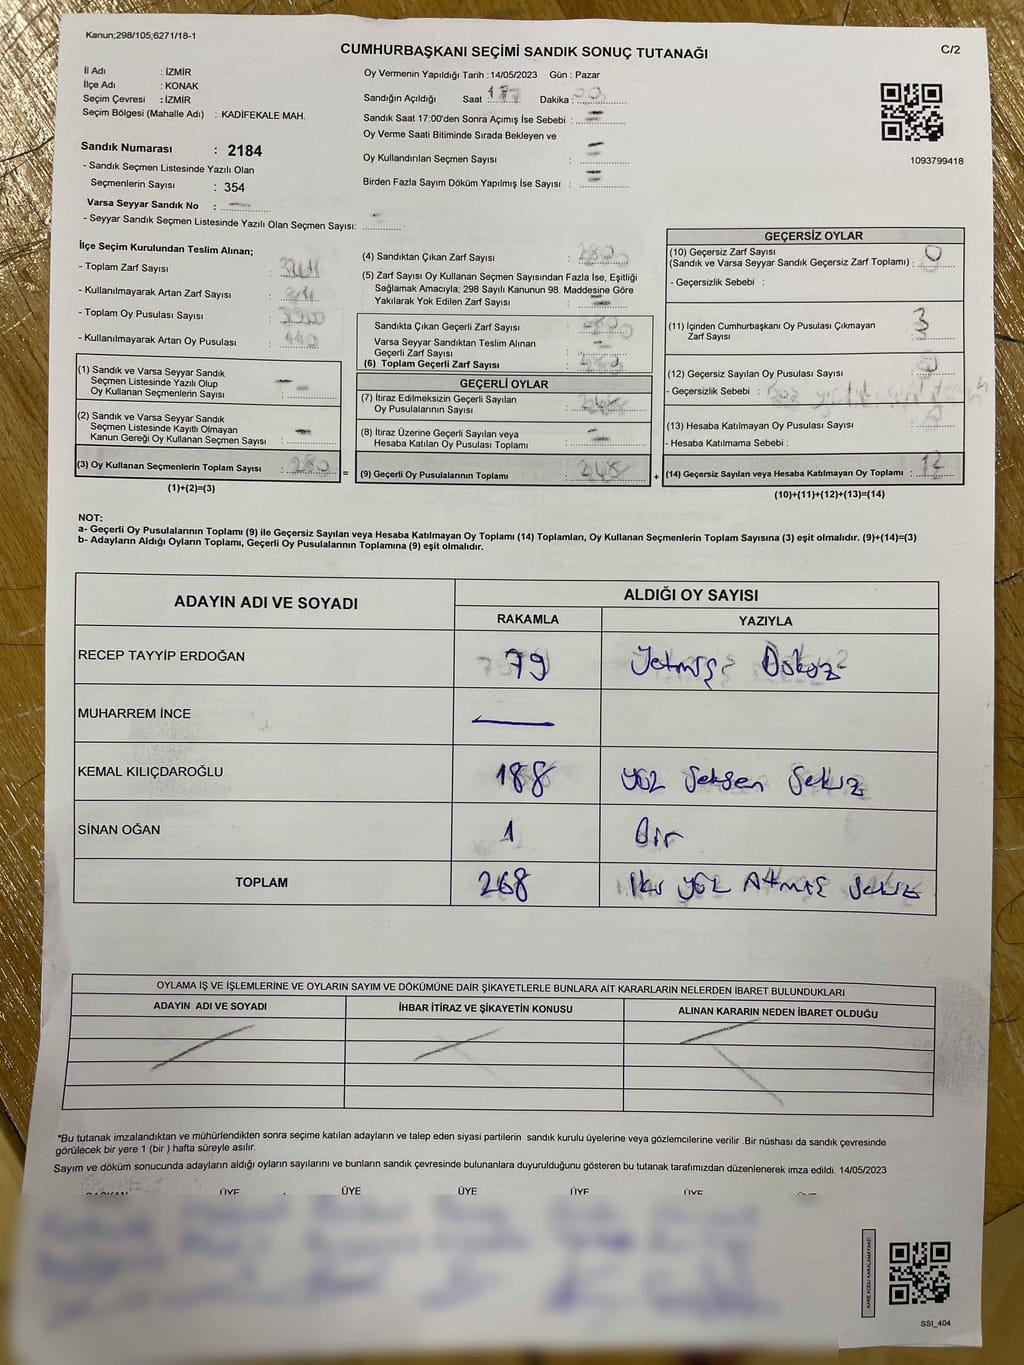 Kanun;298/105;6271/18-1
CUMHURBAŞKANI SEÇİMİ SANDIK SONUÇ TUTANAĞI
C/2
İl Adı : İZMİR
İlçe Adı : KONAK
Seçim Çevresi : İZMİR
Seçim Bölgesi (Mahalle Adı) : KADİFEKALE MAH.
Sandık Numarası : 2184
- Sandık Seçmen Listesinde Yazılı Olan
Seçmenlerin Sayısı : 354
Varsa Seyyar Sandık No :
- Seyyar Sandık Seçmen Listesinde Yazılı Olan Seçmen Sayısı:
Oy Vermenin Yapıldığı Tarih : 14/05/2023 Gün : Pazar
Sandığın Açıldığı Saat : 17 Dakika : 00
Sandık Saat 17:00'den Sonra Açımış İse Sebebi :
Oy Verme Saati Bitiminde Sırada Bekleyen ve
Oy Kullandırılan Seçmen Sayısı :
Birden Fazla Sayım Döküm Yapılmış İse Sayısı :
1093799418
İlçe Seçim Kurulundan Teslim Alınan;
- Toplam Zarf Sayısı :
- Kullanılmayarak Artan Zarf Sayısı :
- Toplam Oy Pusulası Sayısı :
- Kullanılmayarak Artan Oy Pusulası :
(1) Sandık ve Varsa Seyyar Sandık
Seçmen Listesinde Yazılı Olup
Oy Kullanan Seçmenlerin Sayısı :
(2) Sandık ve Varsa Seyyar Sandık
Seçmen Listesinde Kayıtlı Olmayan
Kanun Gereği Oy Kullanan Seçmen Sayısı :
(3) Oy Kullanan Seçmenlerin Toplam Sayısı : 280
(1)+(2)=(3)
=
(4) Sandıktan Çıkan Zarf Sayısı : 280
(5) Zarf Sayısı Oy Kullanan Seçmen Sayısından Fazla İse, Eşitliği
Sağlamak Amacıyla; 298 Sayılı Kanunun 98. Maddesine Göre
Yakılarak Yok Edilen Zarf Sayısı :
Sandıkta Çıkan Geçerli Zarf Sayısı : 280
Varsa Seyyar Sandıktan Teslim Alınan
Geçerli Zarf Sayısı :
(6) Toplam Geçerli Zarf Sayısı : 280
GEÇERLİ OYLAR
(7) İtiraz Edilmeksizin Geçerli Sayılan
Oy Pusulalarının Sayısı : 268
(8) İtiraz Üzerine Geçerli Sayılan veya
Hesaba Katılan Oy Pusulası Toplamı :
(9) Geçerli Oy Pusulalarının Toplamı : 268
+
GEÇERSİZ OYLAR
(10) Geçersiz Zarf Sayısı
(Sandık ve Varsa Seyyar Sandık Geçersiz Zarf Toplamı) : 0
- Geçersizlik Sebebi :
(11) İçinden Cumhurbaşkanı Oy Pusulası Çıkmayan
Zarf Sayısı : 3
(12) Geçersiz Sayılan Oy Pusulası Sayısı :
- Geçersizlik Sebebi :
(13) Hesaba Katılmayan Oy Pusulası Sayısı :
- Hesaba Katılmama Sebebi :
(14) Geçersiz Sayılan veya Hesaba Katılmayan Oy Toplamı : 12
(10)+(11)+(12)+(13)=(14)
NOT:
a- Geçerli Oy Pusulalarının Toplamı (9) ile Geçersiz Sayılan veya Hesaba Katılmayan Oy Toplamı (14) Toplamları, Oy Kullanan Seçmenlerin Toplam Sayısına (3) eşit olmalıdır. (9)+(14)=(3)
b- Adayların Aldığı Oyların Toplamı, Geçerli Oy Pusulalarının Toplamına (9) eşit olmalıdır.
ADAYIN ADI VE SOYADI
ALDIĞI OY SAYISI
RAKAMLA YAZIYLA
RECEP TAYYİP ERDOĞAN 79 Yetmiş Dokuz
MUHARREM İNCE
KEMAL KILIÇDAROĞLU 188 Yüz Seksen Sekiz
SİNAN OĞAN 1 Bir
TOPLAM 268 İki Yüz Atmış Sekiz
OYLAMA İŞ VE İŞLEMLERİNE VE OYLARIN SAYIM VE DÖKÜMÜNE DAİR ŞİKAYETLERLE BUNLARA AİT KARARLARIN NELERDEN İBARET BULUNDUKLARI
ADAYIN ADI VE SOYADI İHBAR İTİRAZ VE ŞİKAYETİN KONUSU ALINAN KARARIN NEDEN İBARET OLDUĞU
*Bu tutanak imzalandıktan ve mühürlendikten sonra seçime katılan adayların ve talep eden siyasi partilerin sandık kurulu üyelerine veya gözlemcilerine verilir .Bir nüshası da sandık çevresinde
görülecek bir yere 1 (bir ) hafta süreyle asılır.
Sayım ve döküm sonucunda adayların aldığı oyların sayılarını ve bunların sandık çevresinde bulunanlara duyurulduğunu gösteren bu tutanak tarafımızdan düzenlenerek imza edildi. 14/05/2023
BAŞKAN ÜYE ÜYE ÜYE ÜYE ÜYE
KARE KODU KARALAMAYINIZ!
SSI_404